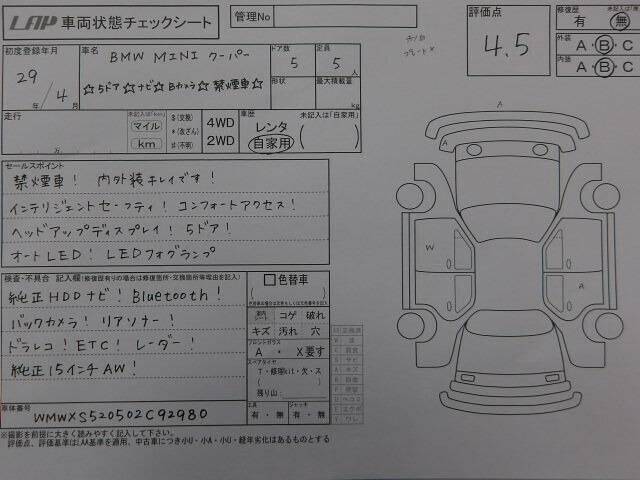 LAP 車両状態チェックシート
管理No
評価点
4.5
修復歴
有 ・ 無
外装
A・B・C
内装
A・B・C
初度登録年月
29
年
4
月
車名
BMW MINI クーパー
☆5ドア☆ナビ☆Bカメラ☆禁煙車☆
ドア数
5
定員
5
人
形状
最大積載量
kg
走行
万
未記入は「km」
マイル
km
$(交換)
*(改ざん)
#(不明)
4WD
2WD
車歴
未記入は「自家用」
レンタ
自家用
セールスポイント
禁煙車! 内外装キレイです!
インテリジェントセーフティ! コンフォートアクセス!
ヘッドアップディスプレイ! 5ドア!
オートLED! LEDフォグランプ
検査・不具合 記入欄(修復歴有りの場合は修復箇所・交換箇所等理由を記入)
純正HDDナビ! Bluetooth!
バックカメラ! リアソナー!
ドラレコ! ETC! レーダー!
純正15インチAW!
色替車
コゲ 破れ
キズ 汚れ 穴
フロントガラス
A ・ X要す
スペアタイヤ
T・修理kit・欠・ス
残り山:
工具
有・無
ジャッキ
有・無
車体番号
WMWXS520502C92980
※撮影を前提に大きく読みやすく記入して下さい。
評価点、評価基準はLAA基準を適用、中古車につき小U・小A・小U・経年劣化はあるものとする
A
A
W
A